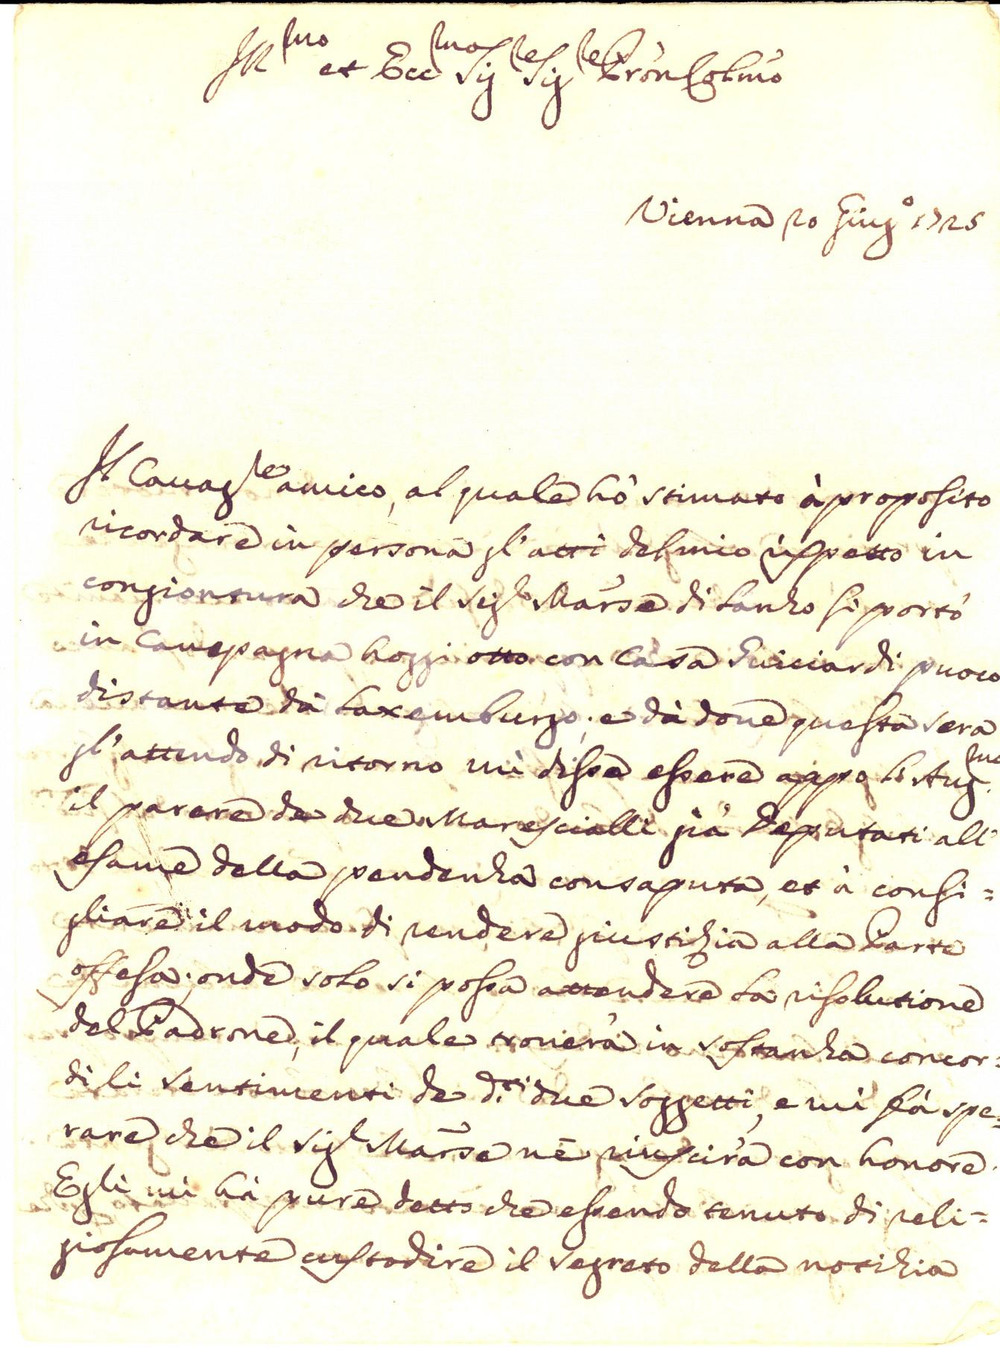 Ill.mo et Ecc.mo Sig.re Sig.re Pron Colmo
Vienna 20 Giug.o 1725
Il Cauag.re amico, al quale hò stimato à proposito
ricordare in persona gl'atti del mio rispetto in
congiontura che il Sig.r Marse di Lanzo si portò
in Campagna hoggi otto con Casa Guiciardi puoco
distante dà Laxemburgo, e dà doue questa sera
gl'attendo di ritorno mi disse essere appo L'Aug.mo
il parere de due Marescialli già Deputati all'
esame della pendenza consaputa, et à consi=
gliare il modo di rendere giustizia alla Parte
offesa; onde solo si possa attendere la risolutione
del Padrone, il quale trouerà in sostanza concor=
di li sentimenti de d.ti due soggetti, e mi fà spe=
rare che il Sig.r Marse ne riuscirà con honore.
Egli mi hà pure detto che essendo tenuto di reli=
giosamente custodire il segreto della notizia